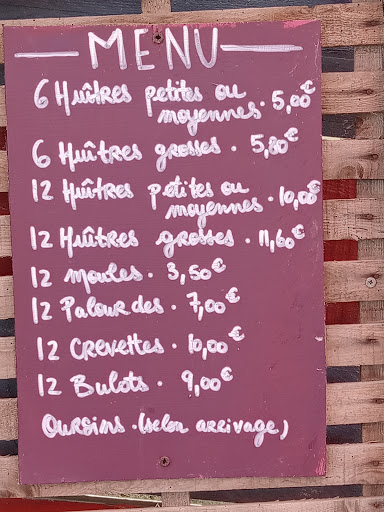 MENU
6 Huîtres petites ou
moyennes. 5,00€
6 Huîtres grosses. 5,80€
12 Huîtres petites ou
moyennes. 10,00€
12 Huîtres grosses. 11,60€
12 moules. 3,50€
12 Palourdes. 7,00€
12 Crevettes. 10,00€
12 Bulots. 9,00€
Oursins. (selon arrivage)